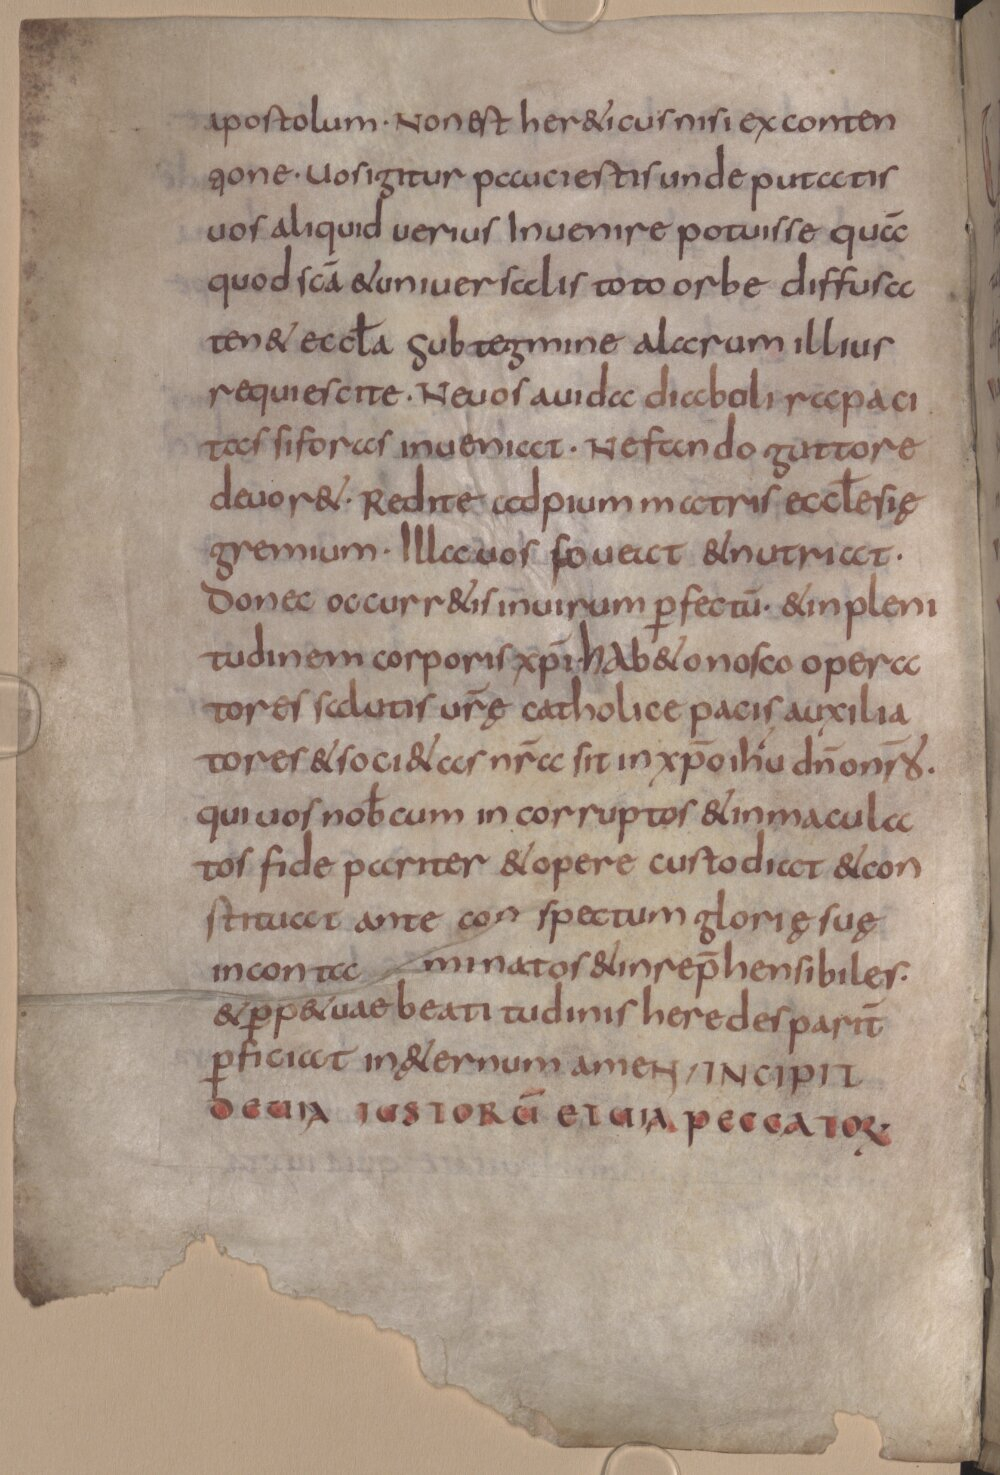 apostolum. Non est her&icus nisi ex conten
tione. Uos igitur pauci estis unde putatis
uos aliquid uerius Inuenire potuisse quā
quod scā & uniuersalis toto orbe diffusa
ten& eccƚa Sub tegmine alarum illius
requiescite. Ne uos auida diaboli rapaci
tas si foras inueniat. Nefando guttore
deuor&. Redite ad pium matris eccƚesię
gremium. Illa uos foueat & nutriat.
Donec occurr&is in uirum ꝑfectū. & in pleni
tudinem corporis xp̄i. hAb&o nos co opera
tores salutis ur̄ę catholice pacis auxilia
tores & soci&as nr̄a sit in xp̄o ihu dn̄o nr̄o.
qui uos nob̄cum in corruptos & inmacula
tos fide pariter & opere custodiat & con
stituat ante con spectum glorię suę
inconta minatos & inrep̄hensibiles.
& ꝑp&uae beatitudinis heredes parit̄
ꝑficiat in &ernum ameN, INCIPIT
DE UIA IUSTORŪ ET UIA PECCATORꝜ